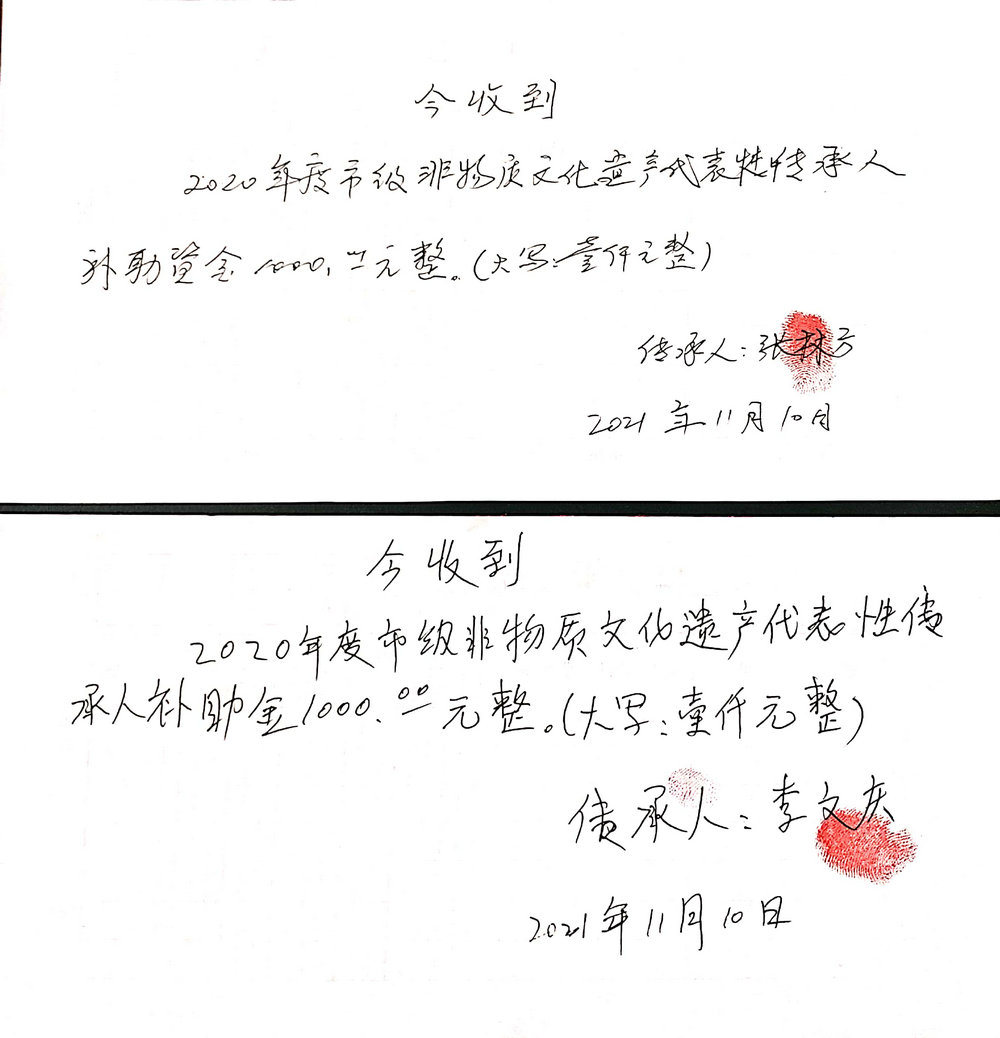 今收到
2020年度市级非物质文化遗产代表性传承人
补助资金1000.00元整。(大写:壹仟元整)
传承人:张林方
2021年11月10月
今收到
2020年度市级非物质文化遗产代表性传
承人补助金1000.00元整。(大写:壹仟元整)
传承人:李文庆
2021年11月10日